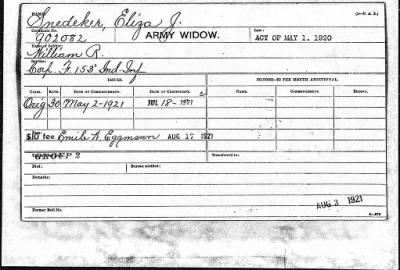 NAME: (3-U. S. B.)
Snedeker, Eliza J.
Certificate No. Law:
902082 ARMY WIDOW. ACT OF MAY 1, 1920
William R.
Service:
Corp. F. 153" Ind. Inf.
ISSUES. MINORS—$2 PER MONTH ADDITIONAL.
CLASS. RATE. DATE OF COMMENCEMENT. DATE OF CERTIFICATE. NAME. COMMENCEMENT. ENDING.
Orig 30 May 2-1921 JUL 18-1921
$10 fee Emile N. Eggmann AUG 17 1921
GROUP 2 Transferred to:
Died: Bureau notified:
Remarks:
AUG 3 1921
Former Roll No.